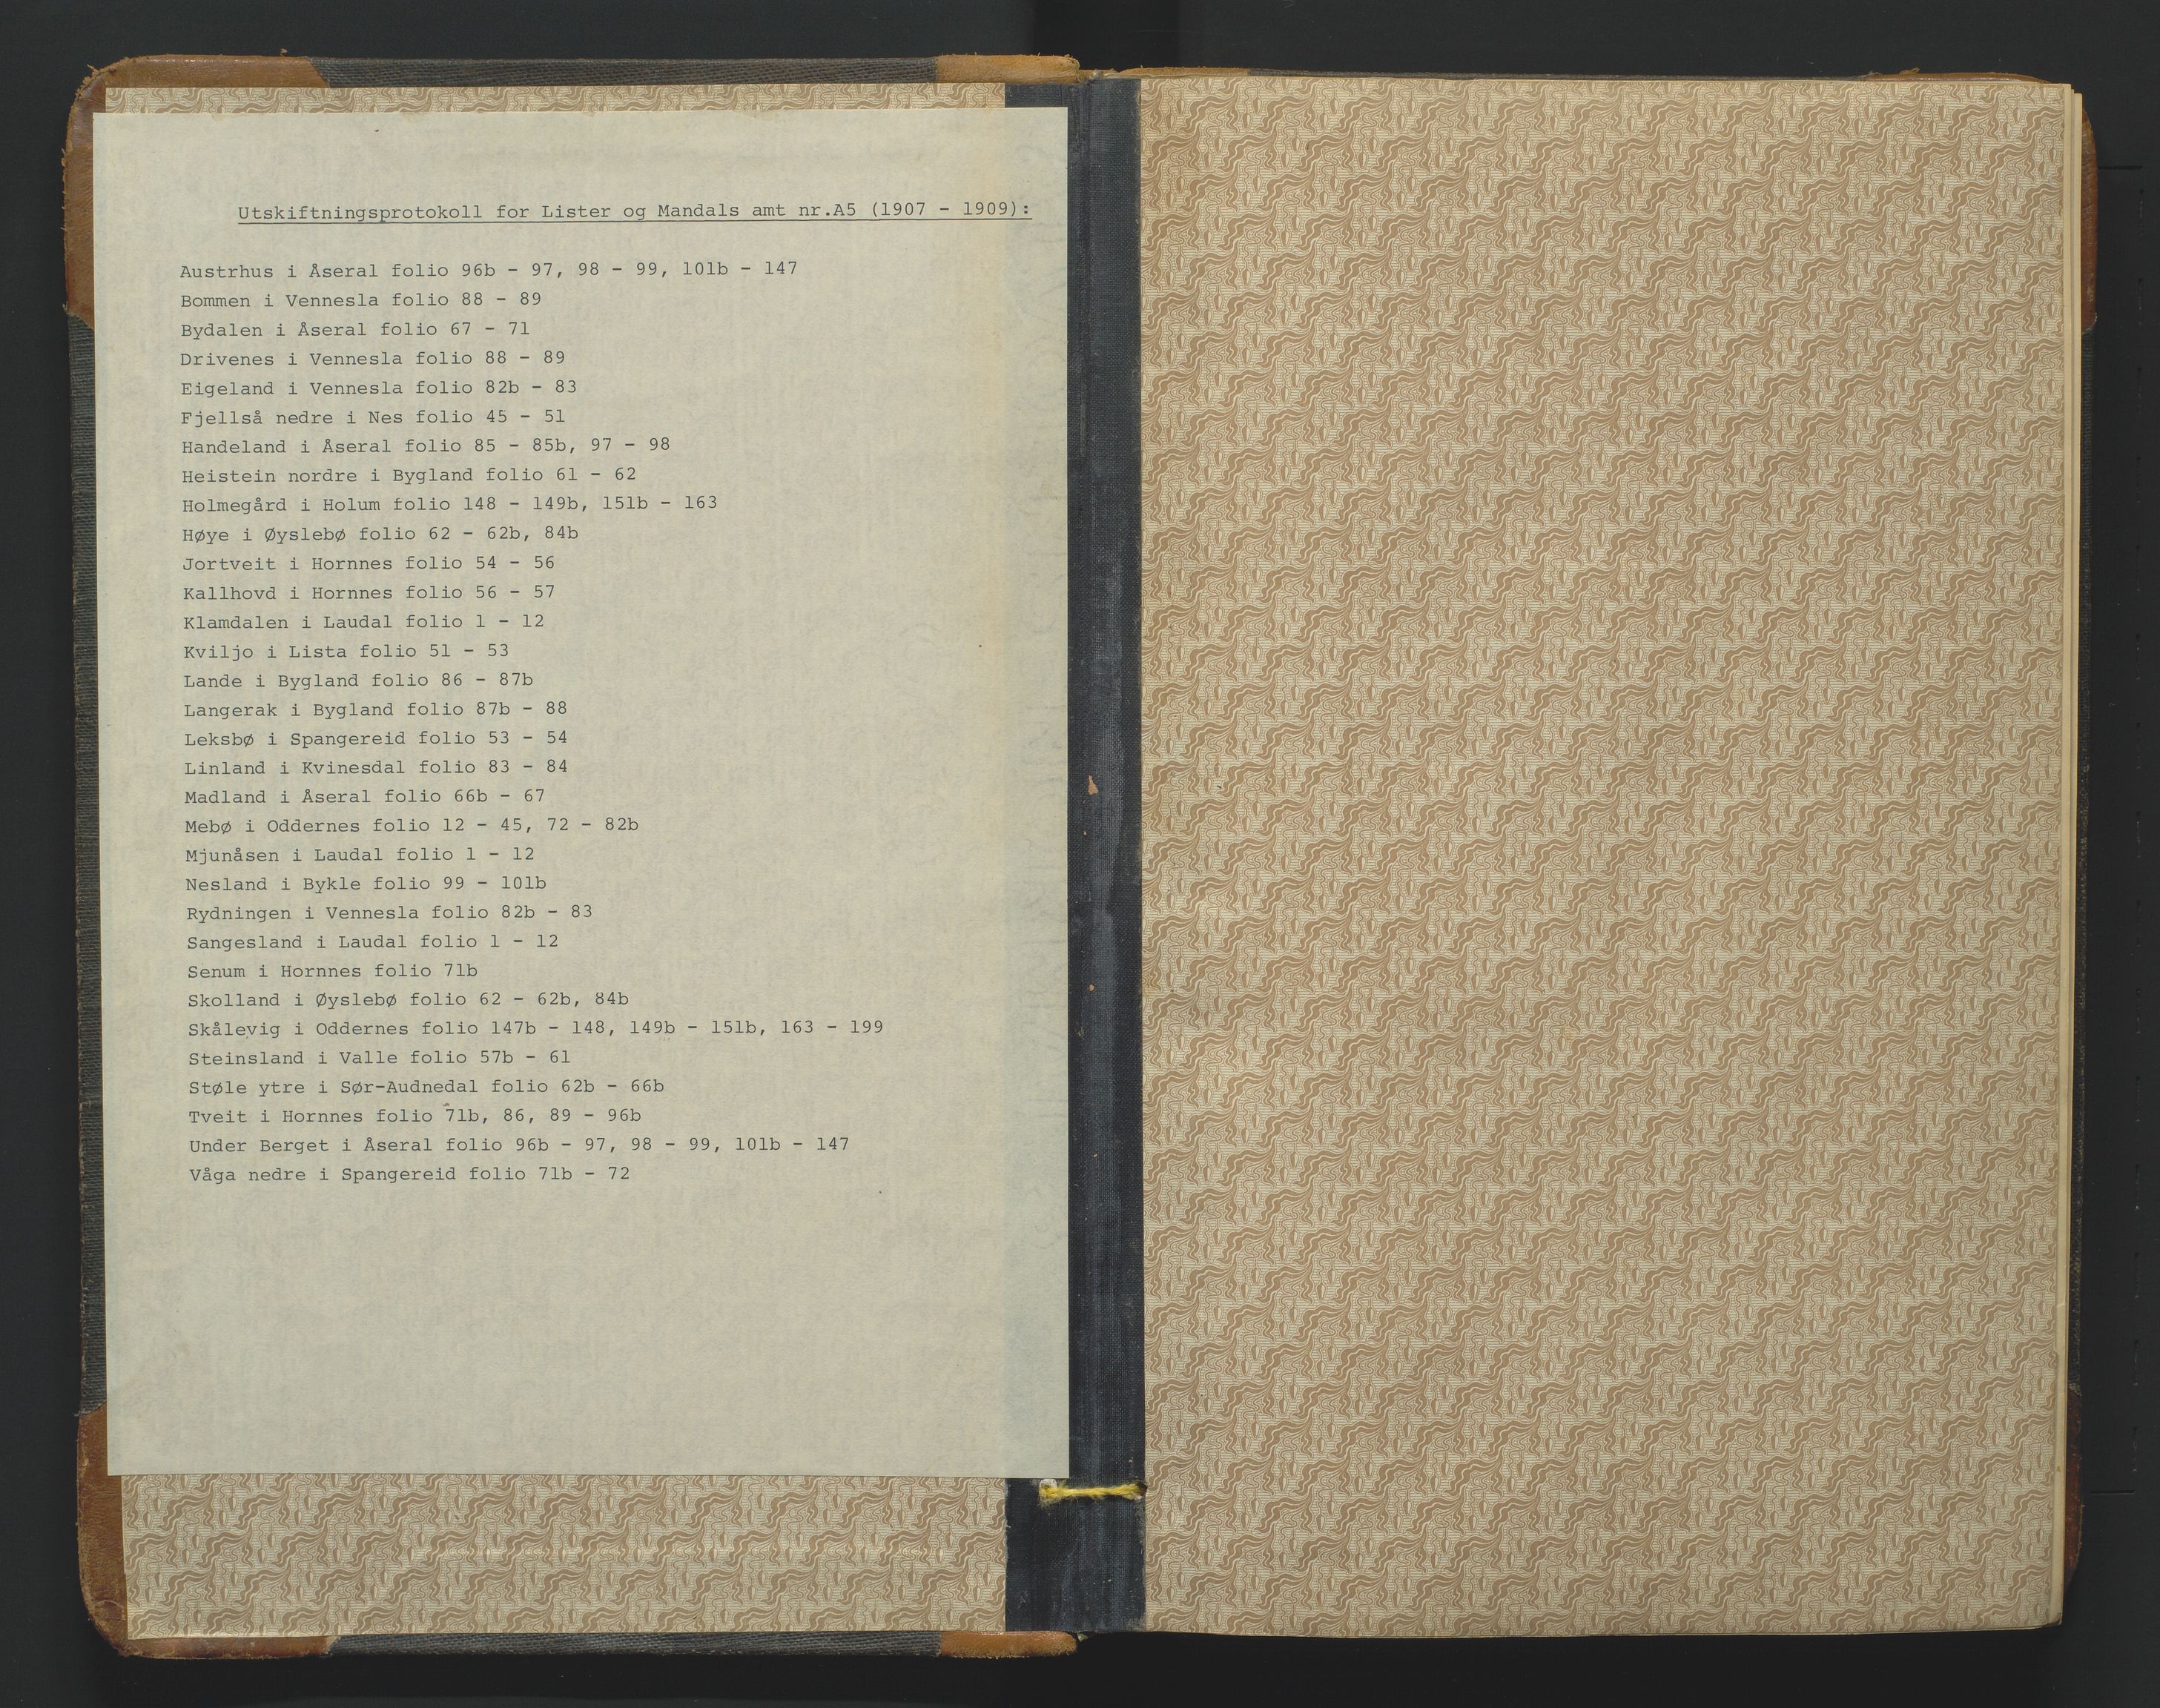 Utskiftningsprotokoll for Lister og Mandals amt nr.A5 (1907 - 1909):
Austrhus i Åseral folio 96b - 97, 98 - 99, 101b - 147
Bommen i Vennesla folio 88 - 89
Bydalen i Åseral folio 67 - 71
Drivenes i Vennesla folio 88 - 89
Eigeland i Vennesla folio 82b - 83
Fjellså nedre i Nes folio 45 - 51
Handeland i Åseral folio 85 - 85b, 97 - 98
Heistein nordre i Bygland folio 61 - 62
Holmegård i Holum folio 148 - 149b, 151b - 163
Høye i Øyslebø folio 62 - 62b, 84b
Jortveit i Hornnes folio 54 - 56
Kallhovd i Hornnes folio 56 - 57
Klamdalen i Laudal folio 1 - 12
Kviljo i Lista folio 51 - 53
Lande i Bygland folio 86 - 87b
Langerak i Bygland folio 87b - 88
Leksbø i Spangereid folio 53 - 54
Linland i Kvinesdal folio 83 - 84
Madland i Åseral folio 66b - 67
Mebø i Oddernes folio 12 - 45, 72 - 82b
Mjunåsen i Laudal folio 1 - 12
Nesland i Bykle folio 99 - 101b
Rydningen i Vennesla folio 82b - 83
Sangesland i Laudal folio 1 - 12
Senum i Hornnes folio 71b
Skolland i Øyslebø folio 62 - 62b, 84b
Skålevig i Oddernes folio 147b - 148, 149b - 151b, 163 - 199
Steinsland i Valle folio 57b - 61
Støle ytre i Sør-Audnedal folio 62b - 66b
Tveit i Hornnes folio 71b, 86, 89 - 96b
Under Berget i Åseral folio 96b - 97, 98 - 99, 101b - 147
Våga nedre i Spangereid folio 71b - 72